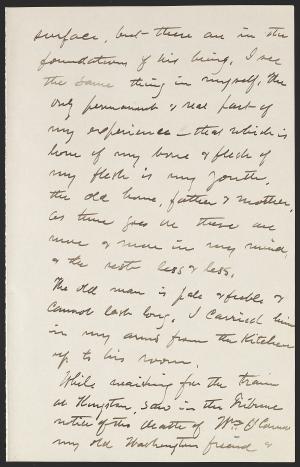 surface, but these are in the
foundations of his being. I see
the same thing in myself. The
only permanent & real part of
my experience — that which is
bone of my bone & flesh of
my flesh is my youth,
the old home, father & mother,
As time goes on these are
more & more in my mind,
& the rest less & less.
The old man is pale & feeble &
cannot last long. I carried him
in my arms from the Kitchen
up to his room.
While waiting for the train
at Kingston, saw in the Tribune
notice of the death of Wm O'Connor
my old Washington friend &